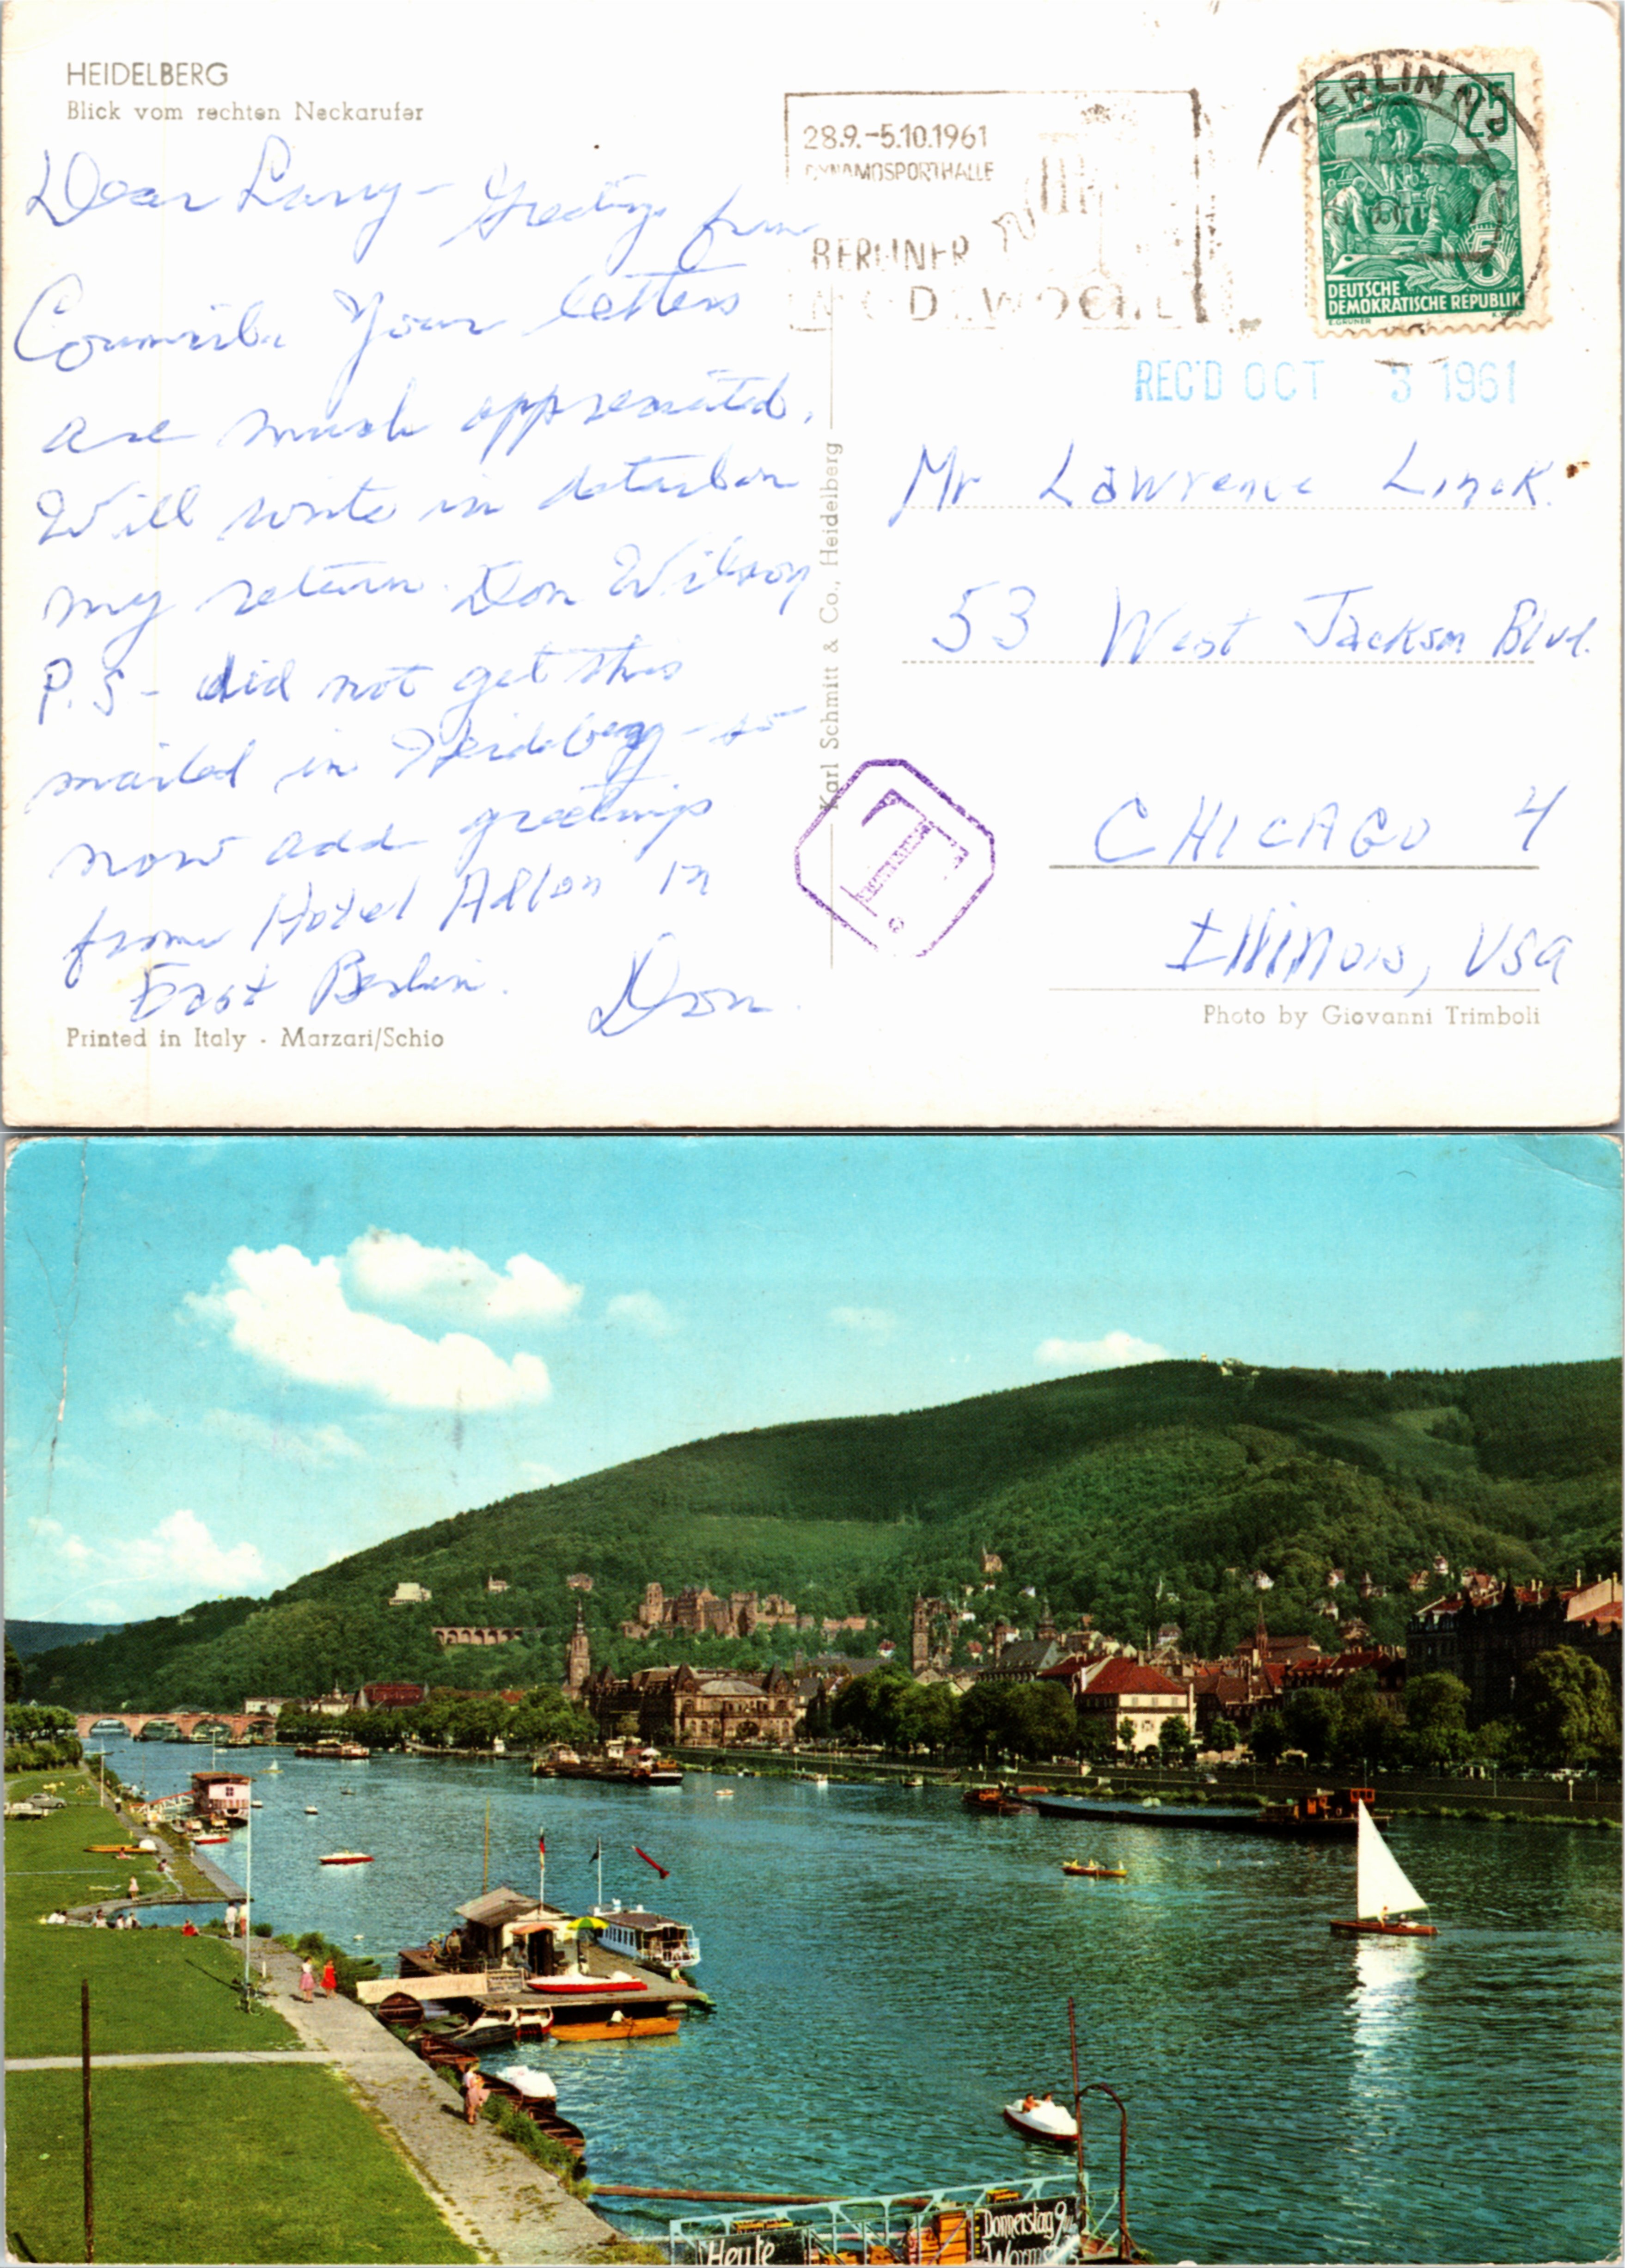 HEIDELBERG
Blick vom rechten Neckarufer
Dear Larry - Greetings from
Your letters
are much appreciated.
Will write in detail on
my return. Don Wilson
P.S - did not get this
mailed in Heidelberg - so
now add greetings
from Hotel Adlon in
East Berlin. Don.
Printed in Italy - Marzari/Schio
Karl Schmitt & Co., Heidelberg
28.9.-5.10.1961
DYNAMOSPORTHALLE
BERLINER
MODEWOCHE
BERLIN
25
5
DEUTSCHE
DEMOKRATISCHE REPUBLIK
E.GRUNER
REC'D OCT 3 1961
Mr Lawrence Linck
53 West Jackson Blvd.
CHICAGO 4
Illinois, USA
T
Photo by Giovanni Trimboli
Heute
Donnerstag 9
Worms